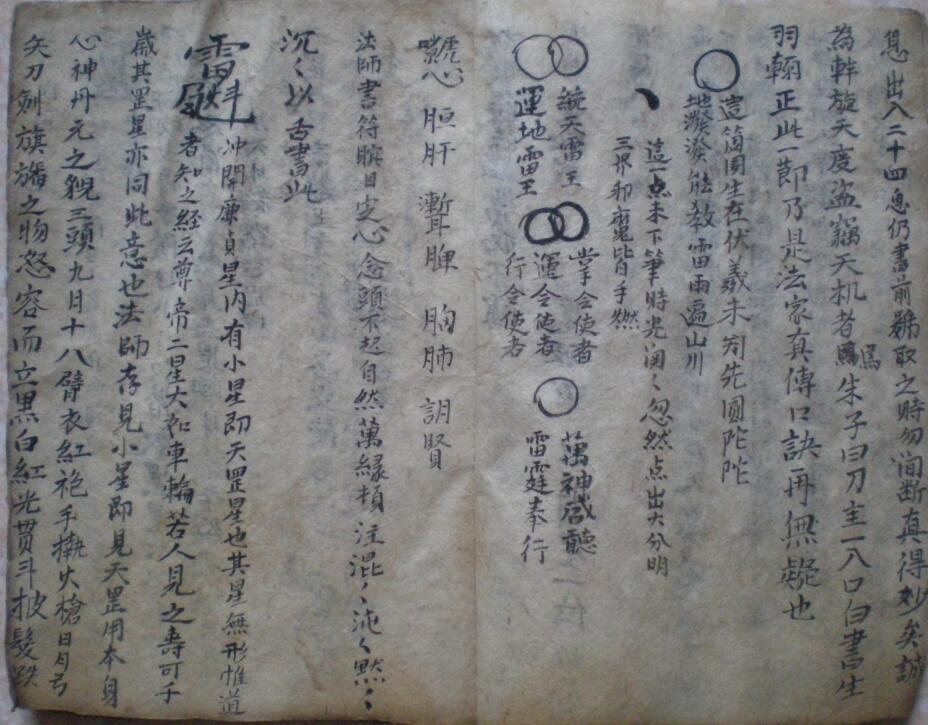 息出入二十四息仍書前號取之時勿間断真得妙矣誠
為斡旋天度盗竊天机者焉朱子曰刀主一八口白書生
羽翰正此一節乃是法家真傳口訣再無疑也
這箇圓生在伏羲未判先圓陀陀
地潑潑能教雷雨遍山川
這一点未下筆時光闰〻忽然点出大分明
三界邪魔皆手燃
統天雷王
運地雷王
掌令使者
運令使者
行令使者
萬神咸聽
雷霆奉行
心 肝 脾 胸肺 腎
法師書符瞑目定心念頭不起自然萬縁頓注混〻沌〻默〻
沉〻以舌書此
冲開廉貞星内有小星即天罡星也其星無形惟道
者知之经云尊帝二星大如車輪若人見之壽可千
歳其罡星亦同此意也法師存見小星即見天罡用本身
心神丹元之貌三頭九目十八臂衣紅袍手執火槍日月弓
矢刀劍旗旛之物怒容而立黒白紅光贯斗披髮跌